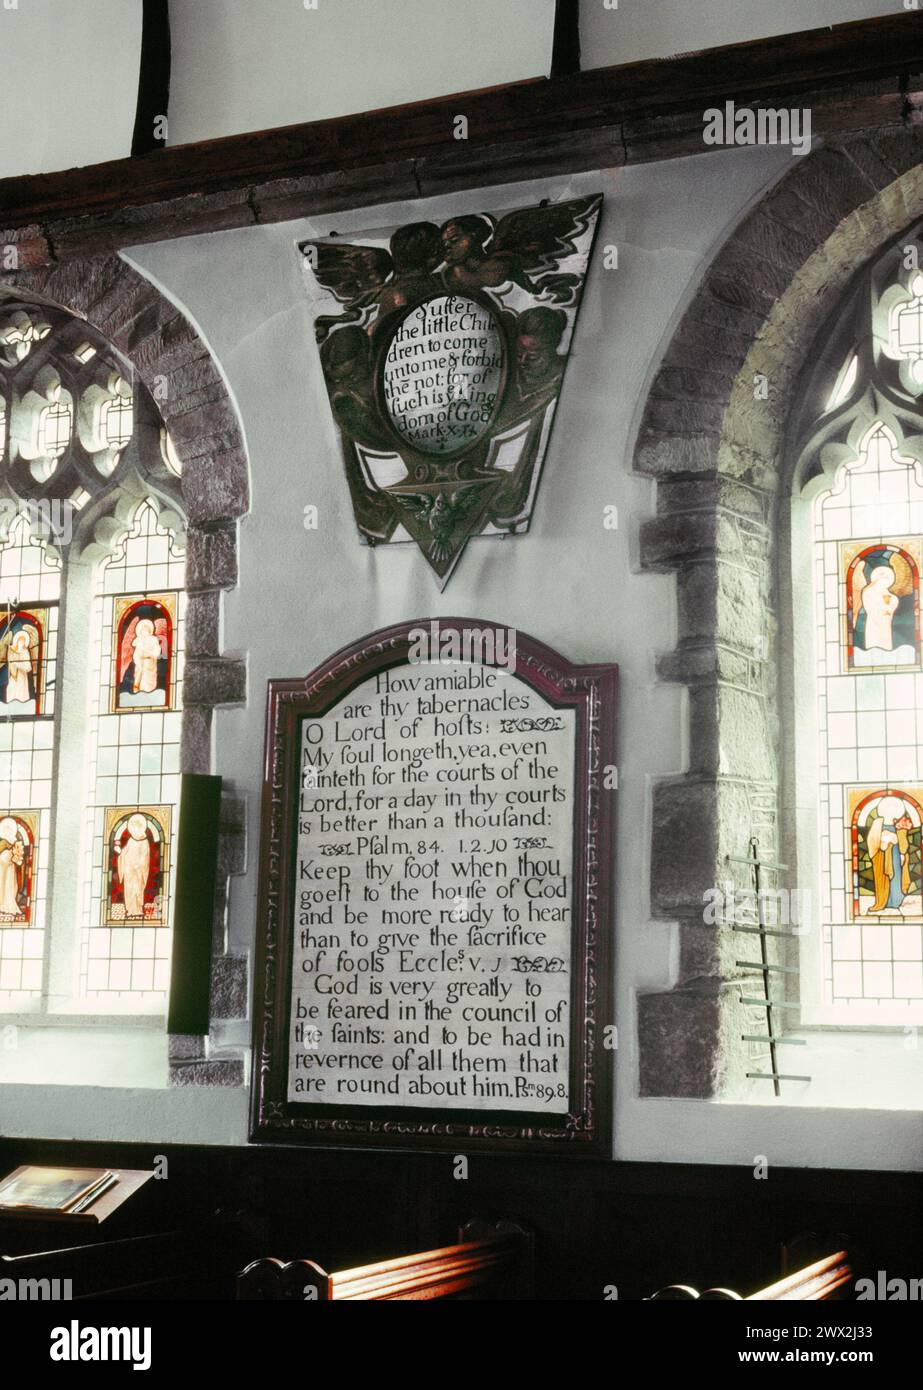 Suffer
the little Chil
dren to come
unto me & forbid
thē not: for of
ſuch is yᵉ King
dom of God
Mark·X·
How amiable
are thy tabernacles
O Lord of hoſts:
My ſoul longeth, yea, even
fainteth for the courts of the
Lord, for a day in thy courts
is better than a thouſand:
Pſalm, 84. 1.2.JO
Keep thy foot when thou
goeſt to the houſe of God
and be more ready to hear
than to give the ſacrifice
of fools Eccleˢ. v. J
God is very greatly to
be feared in the council of
the ſaints: and to be had in
revernce of all them that
are round about him. Pˢᵐ. 89.8.
alamy
Image ID: 2WX2J33
www.alamy.com